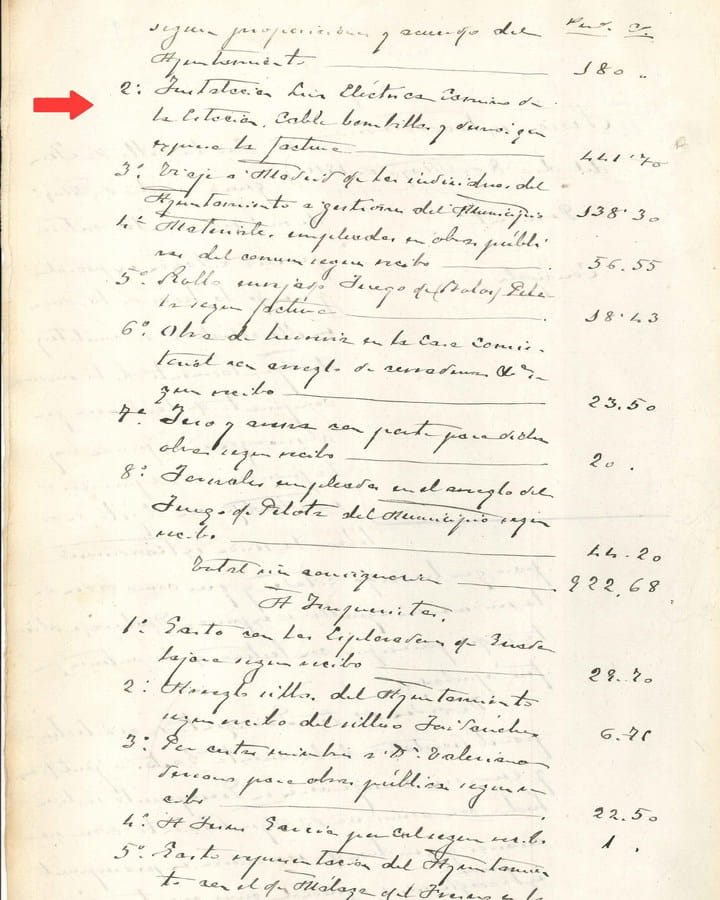 Pest. Cs.
segun proposicion y acuerdo del
Ayuntamiento 180 "
2º Instalacion Luz Eléctrica Camino de
la Estacion. Cable bombillas y demas segun
la factura 441'70
3º Viaje a Madrid de los individuos del
Ayuntamiento a gestiones del Municipio 138'30
4º Materiales empleados en obras públi
cas del comun segun recibo 56.55
5º Rollo Juego de (Bolos) Pelo
ta segun factura 18'43
6º Obra de herreria en la Casa Consis-
torial con arreglo de cerraduras &ª se-
gun recibo 23.50
7º Yeso y con porte para dichas
obras segun recibo 20 .
8º Jornales empleados en el arreglo del
Juego de Pelota del Municipio segun
recibo 44.20
Total sin consignacion 922,68
A Imprevistos.
1º Gasto con los Exploradores de Guada
lajara segun recibo 29.70
2º Arreglo sillas del Ayuntamiento
segun recibo del sillero Sanchez 6.75
3º Por a Dº Valeriano
para obras públicas segun re
cibo 22.50
4º A Juan Garcia por cal segun recibo 1 .
5º Gasto representacion del Ayuntamien
to con el de Málaga del Fresno en la